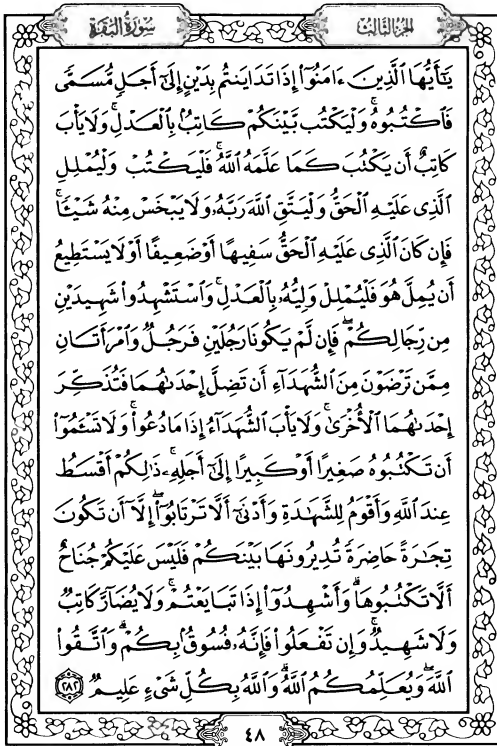 سُورَةُ البَقَرَة
الجُزءُ الثَّالِث
يَٰٓأَيُّهَا ٱلَّذِينَ ءَامَنُوٓا۟ إِذَا تَدَايَنتُم بِدَيْنٍ إِلَىٰٓ أَجَلٍ مُّسَمًّى
فَٱكْتُبُوهُ ۚ وَلْيَكْتُب بَّيْنَكُمْ كَاتِبٌۢ بِٱلْعَدْلِ ۚ وَلَا يَأْبَ
كَاتِبٌ أَن يَكْتُبَ كَمَا عَلَّمَهُ ٱللَّهُ ۚ فَلْيَكْتُبْ وَلْيُمْلِلِ
ٱلَّذِى عَلَيْهِ ٱلْحَقُّ وَلْيَتَّقِ ٱللَّهَ رَبَّهُۥ وَلَا يَبْخَسْ مِنْهُ شَيْـًٔا ۚ
فَإِن كَانَ ٱلَّذِى عَلَيْهِ ٱلْحَقُّ سَفِيهًا أَوْ ضَعِيفًا أَوْ لَا يَسْتَطِيعُ
أَن يُمِلَّ هُوَ فَلْيُمْلِلْ وَلِيُّهُۥ بِٱلْعَدْلِ ۚ وَٱسْتَشْهِدُوا۟ شَهِيدَيْنِ
مِن رِّجَالِكُمْ ۖ فَإِن لَّمْ يَكُونَا رَجُلَيْنِ فَرَجُلٌ وَٱمْرَأَتَانِ
مِمَّن تَرْضَوْنَ مِنَ ٱلشُّهَدَآءِ أَن تَضِلَّ إِحْدَىٰهُمَا فَتُذَكِّرَ
إِحْدَىٰهُمَا ٱلْأُخْرَىٰ ۚ وَلَا يَأْبَ ٱلشُّهَدَآءُ إِذَا مَا دُعُوا۟ ۚ وَلَا تَسْـَٔمُوٓا۟
أَن تَكْتُبُوهُ صَغِيرًا أَوْ كَبِيرًا إِلَىٰٓ أَجَلِهِۦ ۚ ذَٰلِكُمْ أَقْسَطُ
عِندَ ٱللَّهِ وَأَقْوَمُ لِلشَّهَٰدَةِ وَأَدْنَىٰٓ أَلَّا تَرْتَابُوٓا۟ ۖ إِلَّآ أَن تَكُونَ
تِجَٰرَةً حَاضِرَةً تُدِيرُونَهَا بَيْنَكُمْ فَلَيْسَ عَلَيْكُمْ جُنَاحٌ
أَلَّا تَكْتُبُوهَا ۗ وَأَشْهِدُوٓا۟ إِذَا تَبَايَعْتُمْ ۚ وَلَا يُضَآرَّ كَاتِبٌ
وَلَا شَهِيدٌ ۚ وَإِن تَفْعَلُوا۟ فَإِنَّهُۥ فُسُوقٌۢ بِكُمْ ۗ وَٱتَّقُوا۟
ٱللَّهَ ۖ وَيُعَلِّمُكُمُ ٱللَّهُ ۗ وَٱللَّهُ بِكُلِّ شَىْءٍ عَلِيمٌ ٢٨٢
٤٨